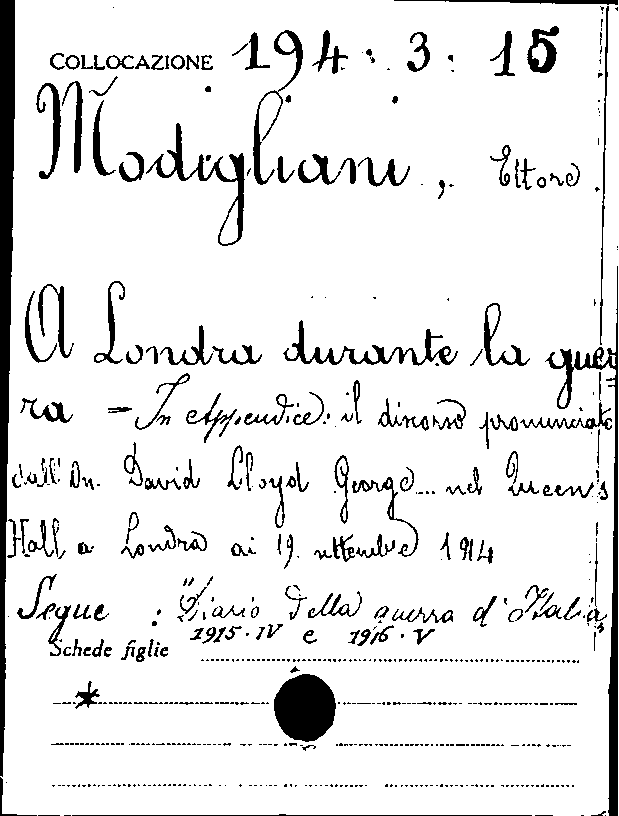 COLLOCAZIONE 194 : 3 : 15
Modigliani, Ettore.
A Londra durante la guer=
ra - In Appendice: il discorso pronunciato
dall'On. David Lloyd George... nel Queen's
Hall a Londra ai 19 settembre 1914
Segue : "Diario della guerra d'Italia,
1915·IV e 1916·V
Schede figlie
*